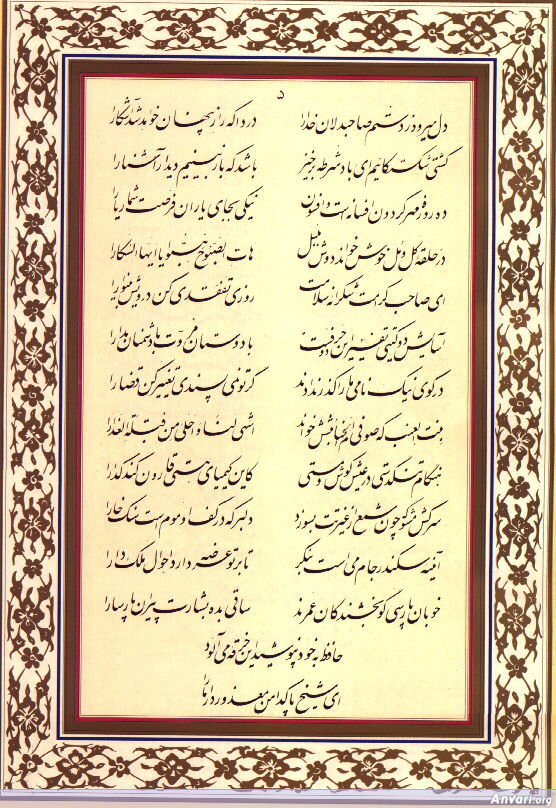 ۵
دل میرود ز دستم صاحبدلان خدا را دردا که راز پنهان خواهد شد آشکارا
کشتی شکستگانیم ای باد شرطه برخیز باشد که باز بینیم دیدار آشنا را
ده روزه مهر گردون افسانه است و افسون نیکی بجای یاران فرصت شمار یارا
در حلقه گل و مل خوش خواند دوش بلبل هات الصبوح هبوا یا ایها السکارا
ای صاحب کرامت شکرانه سلامت روزی تفقدی کن درویش بینوا را
آسایش دو گیتی تفسیر این دو حرفست با دوستان مروت با دشمنان مدارا
در کوی نیک نامی ما را گذر ندادند گر تو نمی پسندی تغییر کن قضا را
بنت العنب که صوفی ام الخبائثش خواند اشهی لنا و احلی من قبلة العذارا
هنگام تنگدستی در عیش کوش و مستی کاین کیمیای هستی قارون کند گدا را
سرکش مشو که چون شمع از غیرتت بسوزد دلبر که در کف او موم است سنگ خارا
آینه سکندر جام می است بنگر تا بر تو عرضه دارد احوال ملک دارا
خوبان پارسی گو بخشندگان عمرند ساقی بده بشارت پیران پارسا را
حافظ به خود نپوشید این خرقه می آلود
ای شیخ پاکدامن معذور دار ما را
Anvari.org